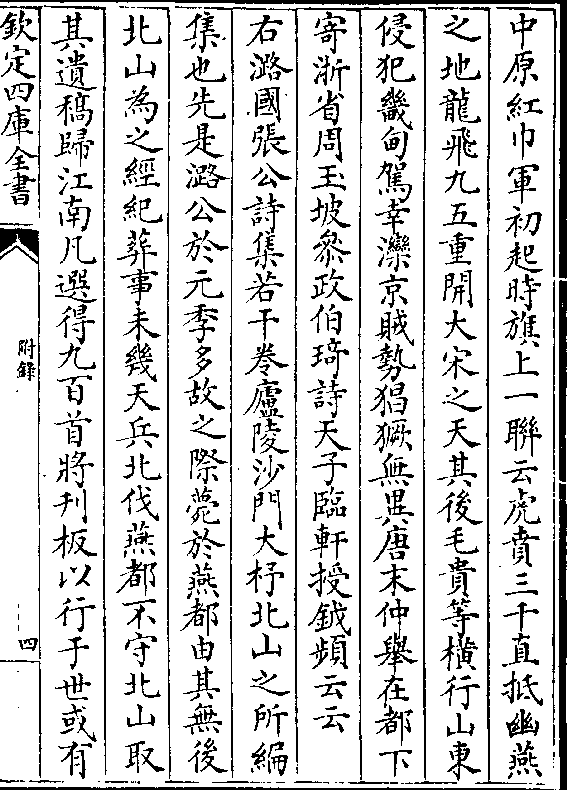 中原紅巾軍初起時旗上一聯云虎賁三千直抵幽燕
之地龍飛九五重開大宋之天其後毛貴等橫行山東
侵犯畿甸駕幸灤京賊勢猖獗無異唐末仲舉在都下
寄浙省周玉坡參政伯琦詩天子臨軒授鉞頻云云
右潞國張公詩集若干卷廬陵沙門大杼北山之所編
集也先是潞公於元季多故之際薨於燕都由其無後
北山為之經紀葬事未幾天兵北伐燕都不守北山取
其遺稿歸江南凡選得九百首將刊板以行于世或有
欽定四庫全書
附錄
四